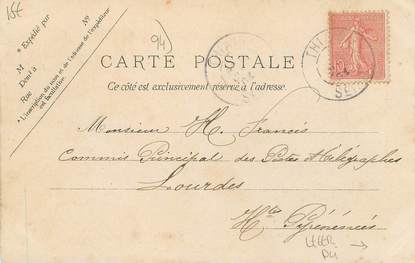 15€
* Expédié par
Nº
M
Demt à
Rue
* L'inscription du nom et de l'adresse de l'expéditeur
est facultative
94
CARTE POSTALE
Ce côté est exclusivement réservé à l'adresse.
THI
SEI
10
Monsieur H. Francis
Commis Principal des Postes & Télégraphes
Lourdes
Htes Pyrénées
LEGER
PLI